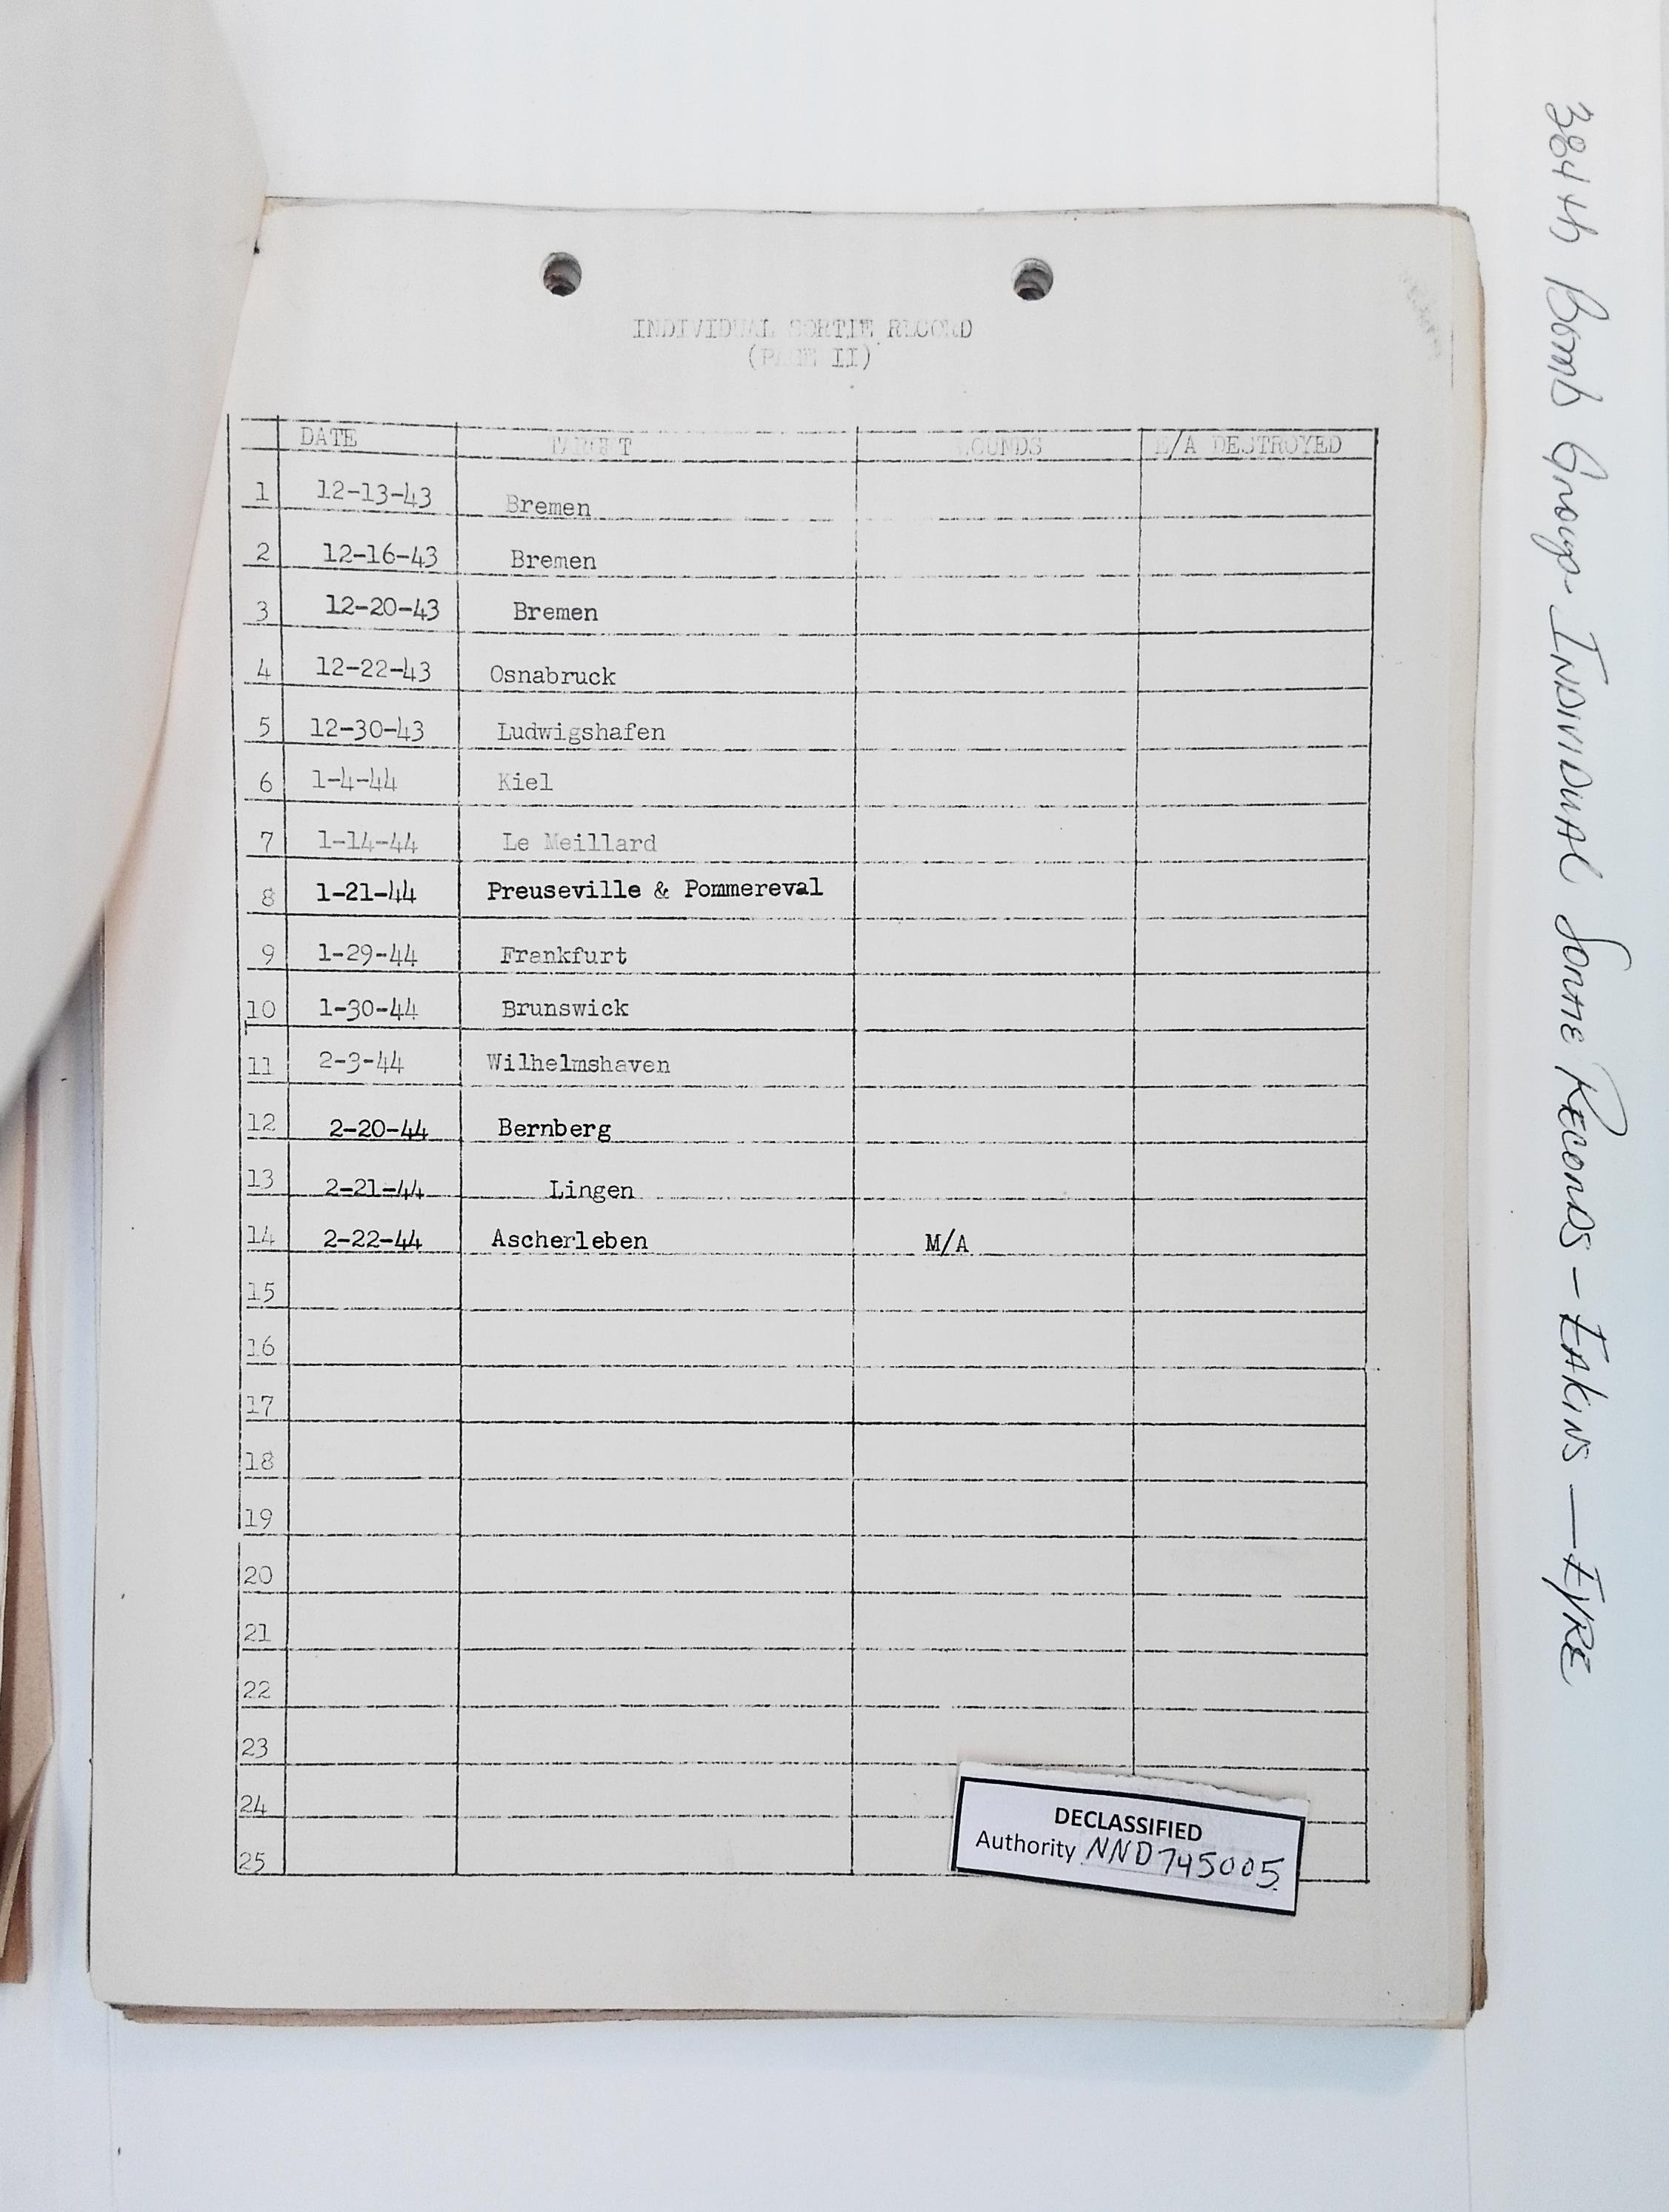 INDIVIDUAL SORTIE RECORD
(PAGE II)
DATE TARGET WOUNDS E/A DESTROYED
1 12-13-43 Bremen
2 12-16-43 Bremen
3 12-20-43 Bremen
4 12-22-43 Osnabruck
5 12-30-43 Ludwigshafen
6 1-4-44 Kiel
7 1-14-44 Le Meillard
8 1-21-44 Preuseville & Pommereval
9 1-29-44 Frankfurt
10 1-30-44 Brunswick
11 2-3-44 Wilhelmshaven
12 2-20-44 Bernberg
13 2-21-44 Lingen
14 2-22-44 Ascherleben M/A
15
16
17
18
19
20
21
22
23
24
25
DECLASSIFIED
Authority NND745005
384th Bomb Group - INDIVIDUAL SORTIE RECORDS - EAKINS - EYRE